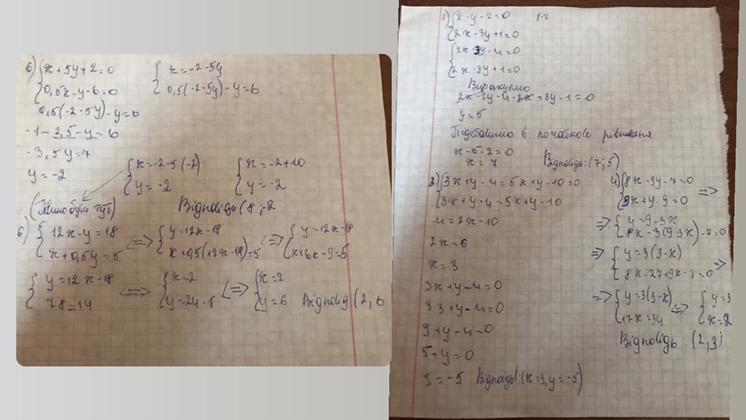 б) { x+5y+2=0
0,5x-y-6=0
{ x=-2-5y
0,5(-2-5y)-y=6
0,5(-2-5y)-y=6
-1-2,5-y=6
-3,5y=7
y=-2
{ x=-2-5(-2)
y=-2
{ x=-2+10
y=-2
Відповідь(8,-2
б) { 12x-y=18
x+0,5y=5
<=> { y=12x-18
x+0,5(12x-18)=5
=> { y=12x-18
{ y=12x-18
78=14
<=> { x=2
<=> { x=2
y=6
Відповідь (2,6
1) { x-y-2=0
2x-3y+1=0
2x-3y+1=0
2x-2y-4-2x+3y-1=0
y=5
Підставимо в початкове рівняння
x-5-2=0
x=7
Відповідь:(7;5)
2) { 3x+y-4=5x+y-10=0
3x+y-4=5x+y-10
-4=2x-10
2x=6
x=3
3x+y-4=0
3·3+y-4=0
9+y-4=0
5+y=0
y=-5 Відповідь:(x=3,y=-5)
4) { 8x-3y-7=0
3x+y-9=0 =>
=> { y=9-3x
8x-3(9-3x)-7=0
=> { y=3(3-x)
8x-27+9x-7=0 =>
=> { y=3(3-x)
17x=34
<=> { y=3
x=2
Відповідь: (2,3)